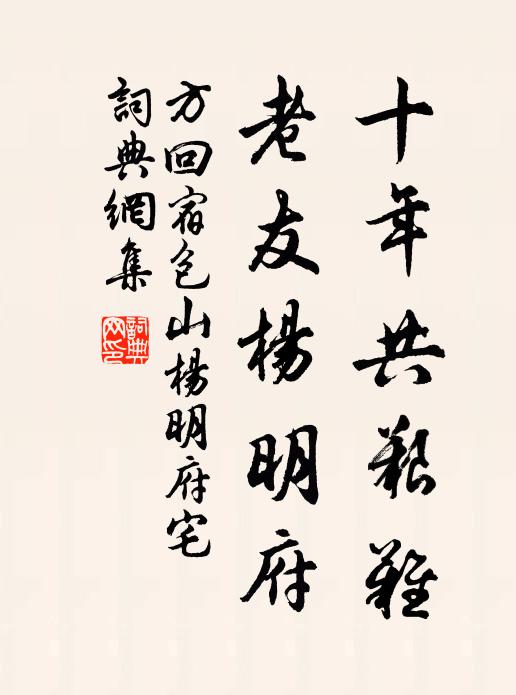 十年共艱難
老友楊明府
方回宿包山楊明府宅
詞典網集
詞典網印